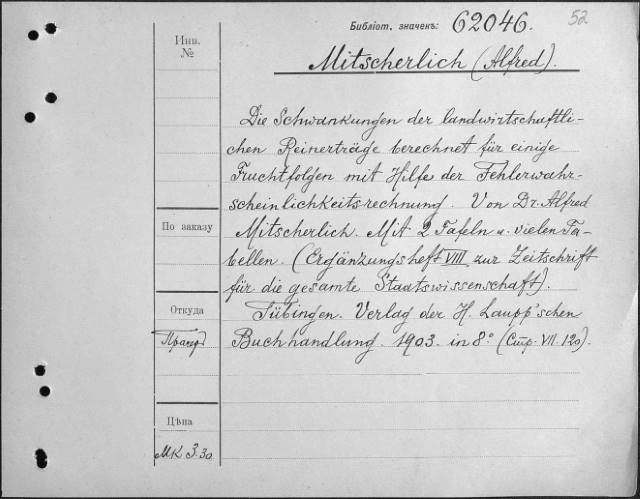 Библіот. значекъ: 62046. 52
Инв. №
Mitscherlich (Alfred).
Die Schwankungen der landwirtschaftli-
chen Reinerträge berechnet für einige
Fruchtfolgen mit Hilfe der Fehlerwahr-
scheinlichkeitsrechnung. Von Dr. Alfred
По заказу
Mitscherlich. Mit 2 Tafeln u. vielen Ta-
bellen. (Ergänzungsheft VIII zur Zeitschrift
für die gesamte Staatswissenschaft).
Откуда
Tübingen. Verlag der H. Laupp'schen
Прагер
Buchhandlung. 1903. in 8° (Стр. VII. 120).
Цѣна
Мк 3.30